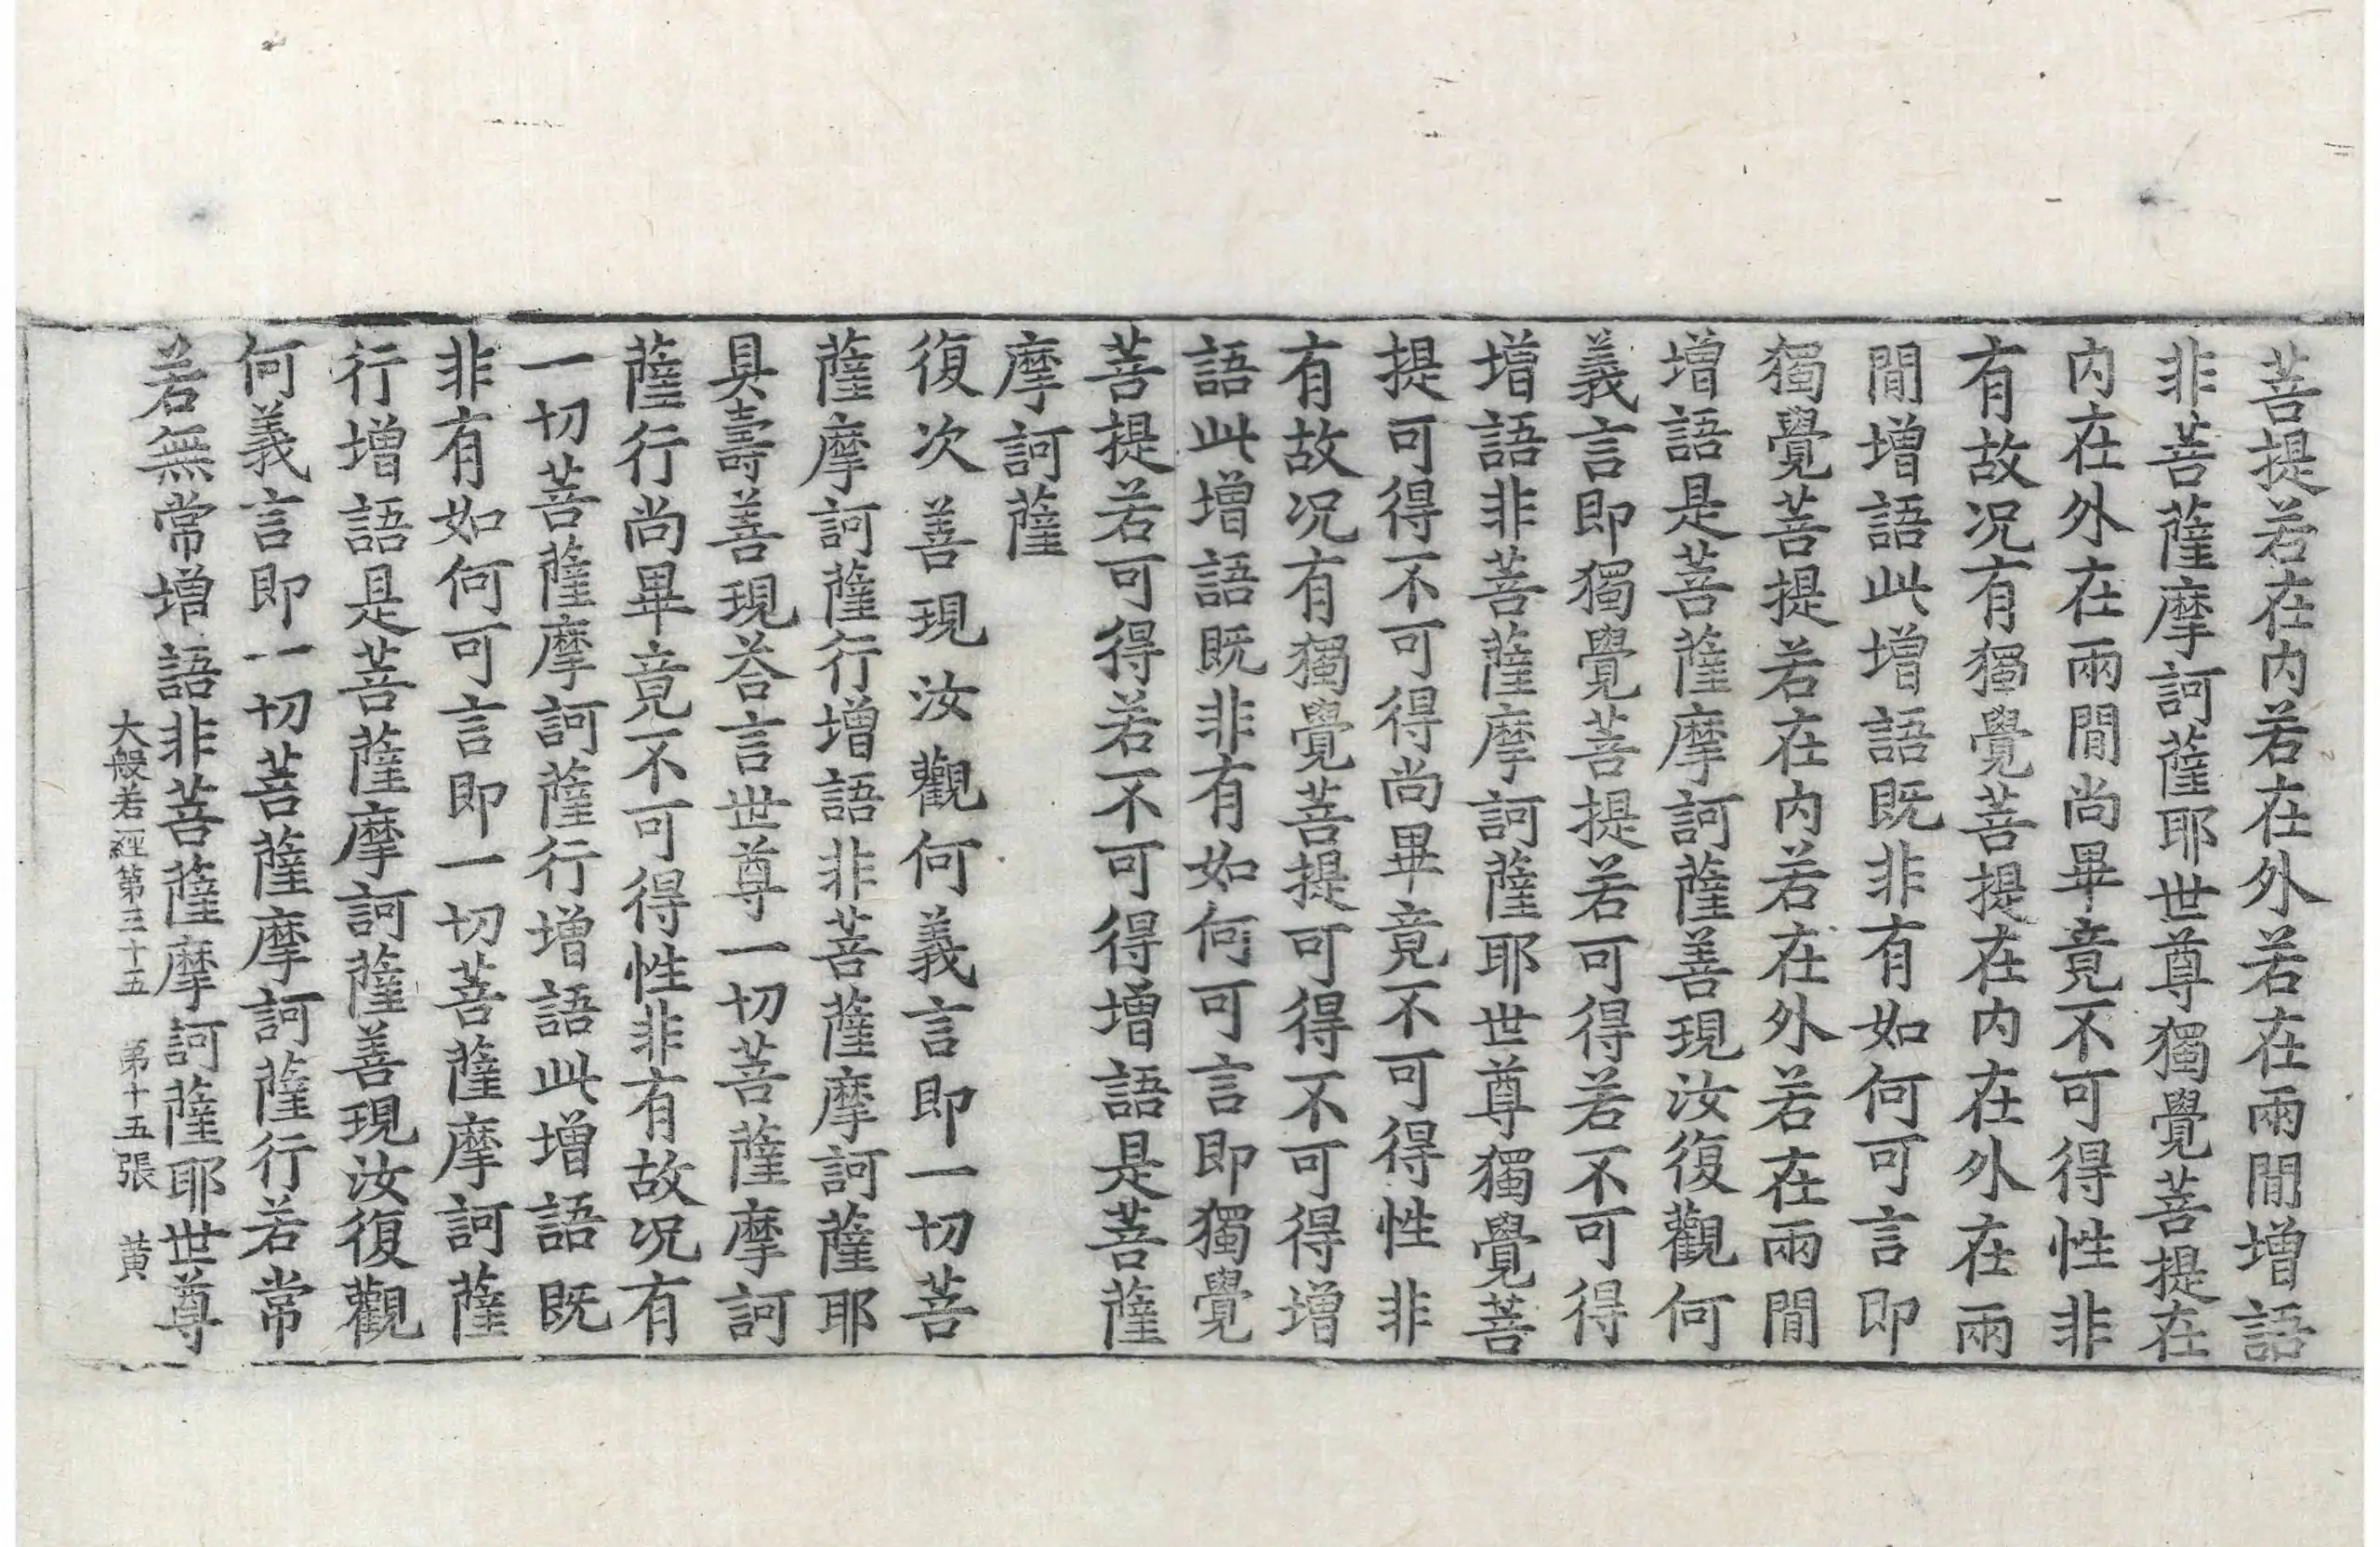 菩提若在内若在外若在兩閒增語
非菩薩摩訶薩耶世尊獨覺菩提在
内在外在兩閒尚畢竟不可得性非
有故况有獨覺菩提在内在外在兩
閒增語此增語既非有如何可言即
獨覺菩提若在内若在外若在兩閒
增語是菩薩摩訶薩善現汝復觀何
義言即獨覺菩提若可得若不可得
增語非菩薩摩訶薩耶世尊獨覺菩
提可得不可得尚畢竟不可得性非
有故况有獨覺菩提可得不可得增
語此增語既非有如何可言即獨覺
菩提若可得若不可得增語是菩薩
摩訶薩
復次善現汝觀何義言即一切菩
薩摩訶薩行增語非菩薩摩訶薩耶
具壽善現荅言世尊一切菩薩摩訶
薩行尚畢竟不可得性非有故况有
一切菩薩摩訶薩行增語此增語既
非有如何可言即一切菩薩摩訶薩
行增語是菩薩摩訶薩善現汝復觀
何義言即一切菩薩摩訶薩行若常
若無常增語非菩薩摩訶薩耶世尊
大般若經第三十五 第十五張 黄